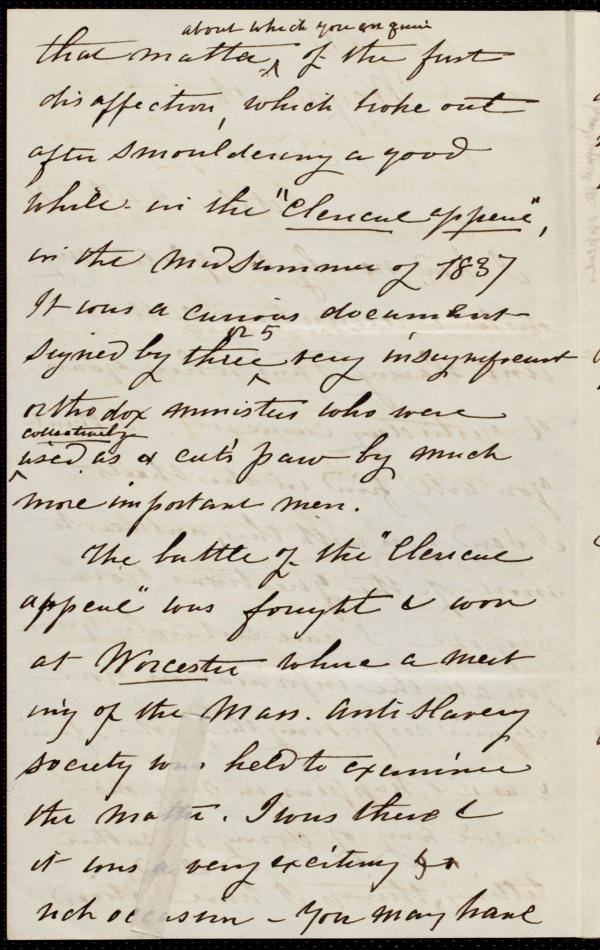 about which you enquire
that matter of the first
disaffection, which broke out
after smouldering a good
while in the "Clerical appeal",
in the midsummer of 1837
It was a curious document
or 5
signed by three very insignificant
orthodox ministers who were
collectively
used as a cat's paw by much
more important men.
The battle of the "Clerical
appeal" was fought & won
at Worcester where a meet
ing of the Mass. Anti Slavery
society was held to examine
the matter. I was there &
it was a very exciting &
rich occasion - You may have